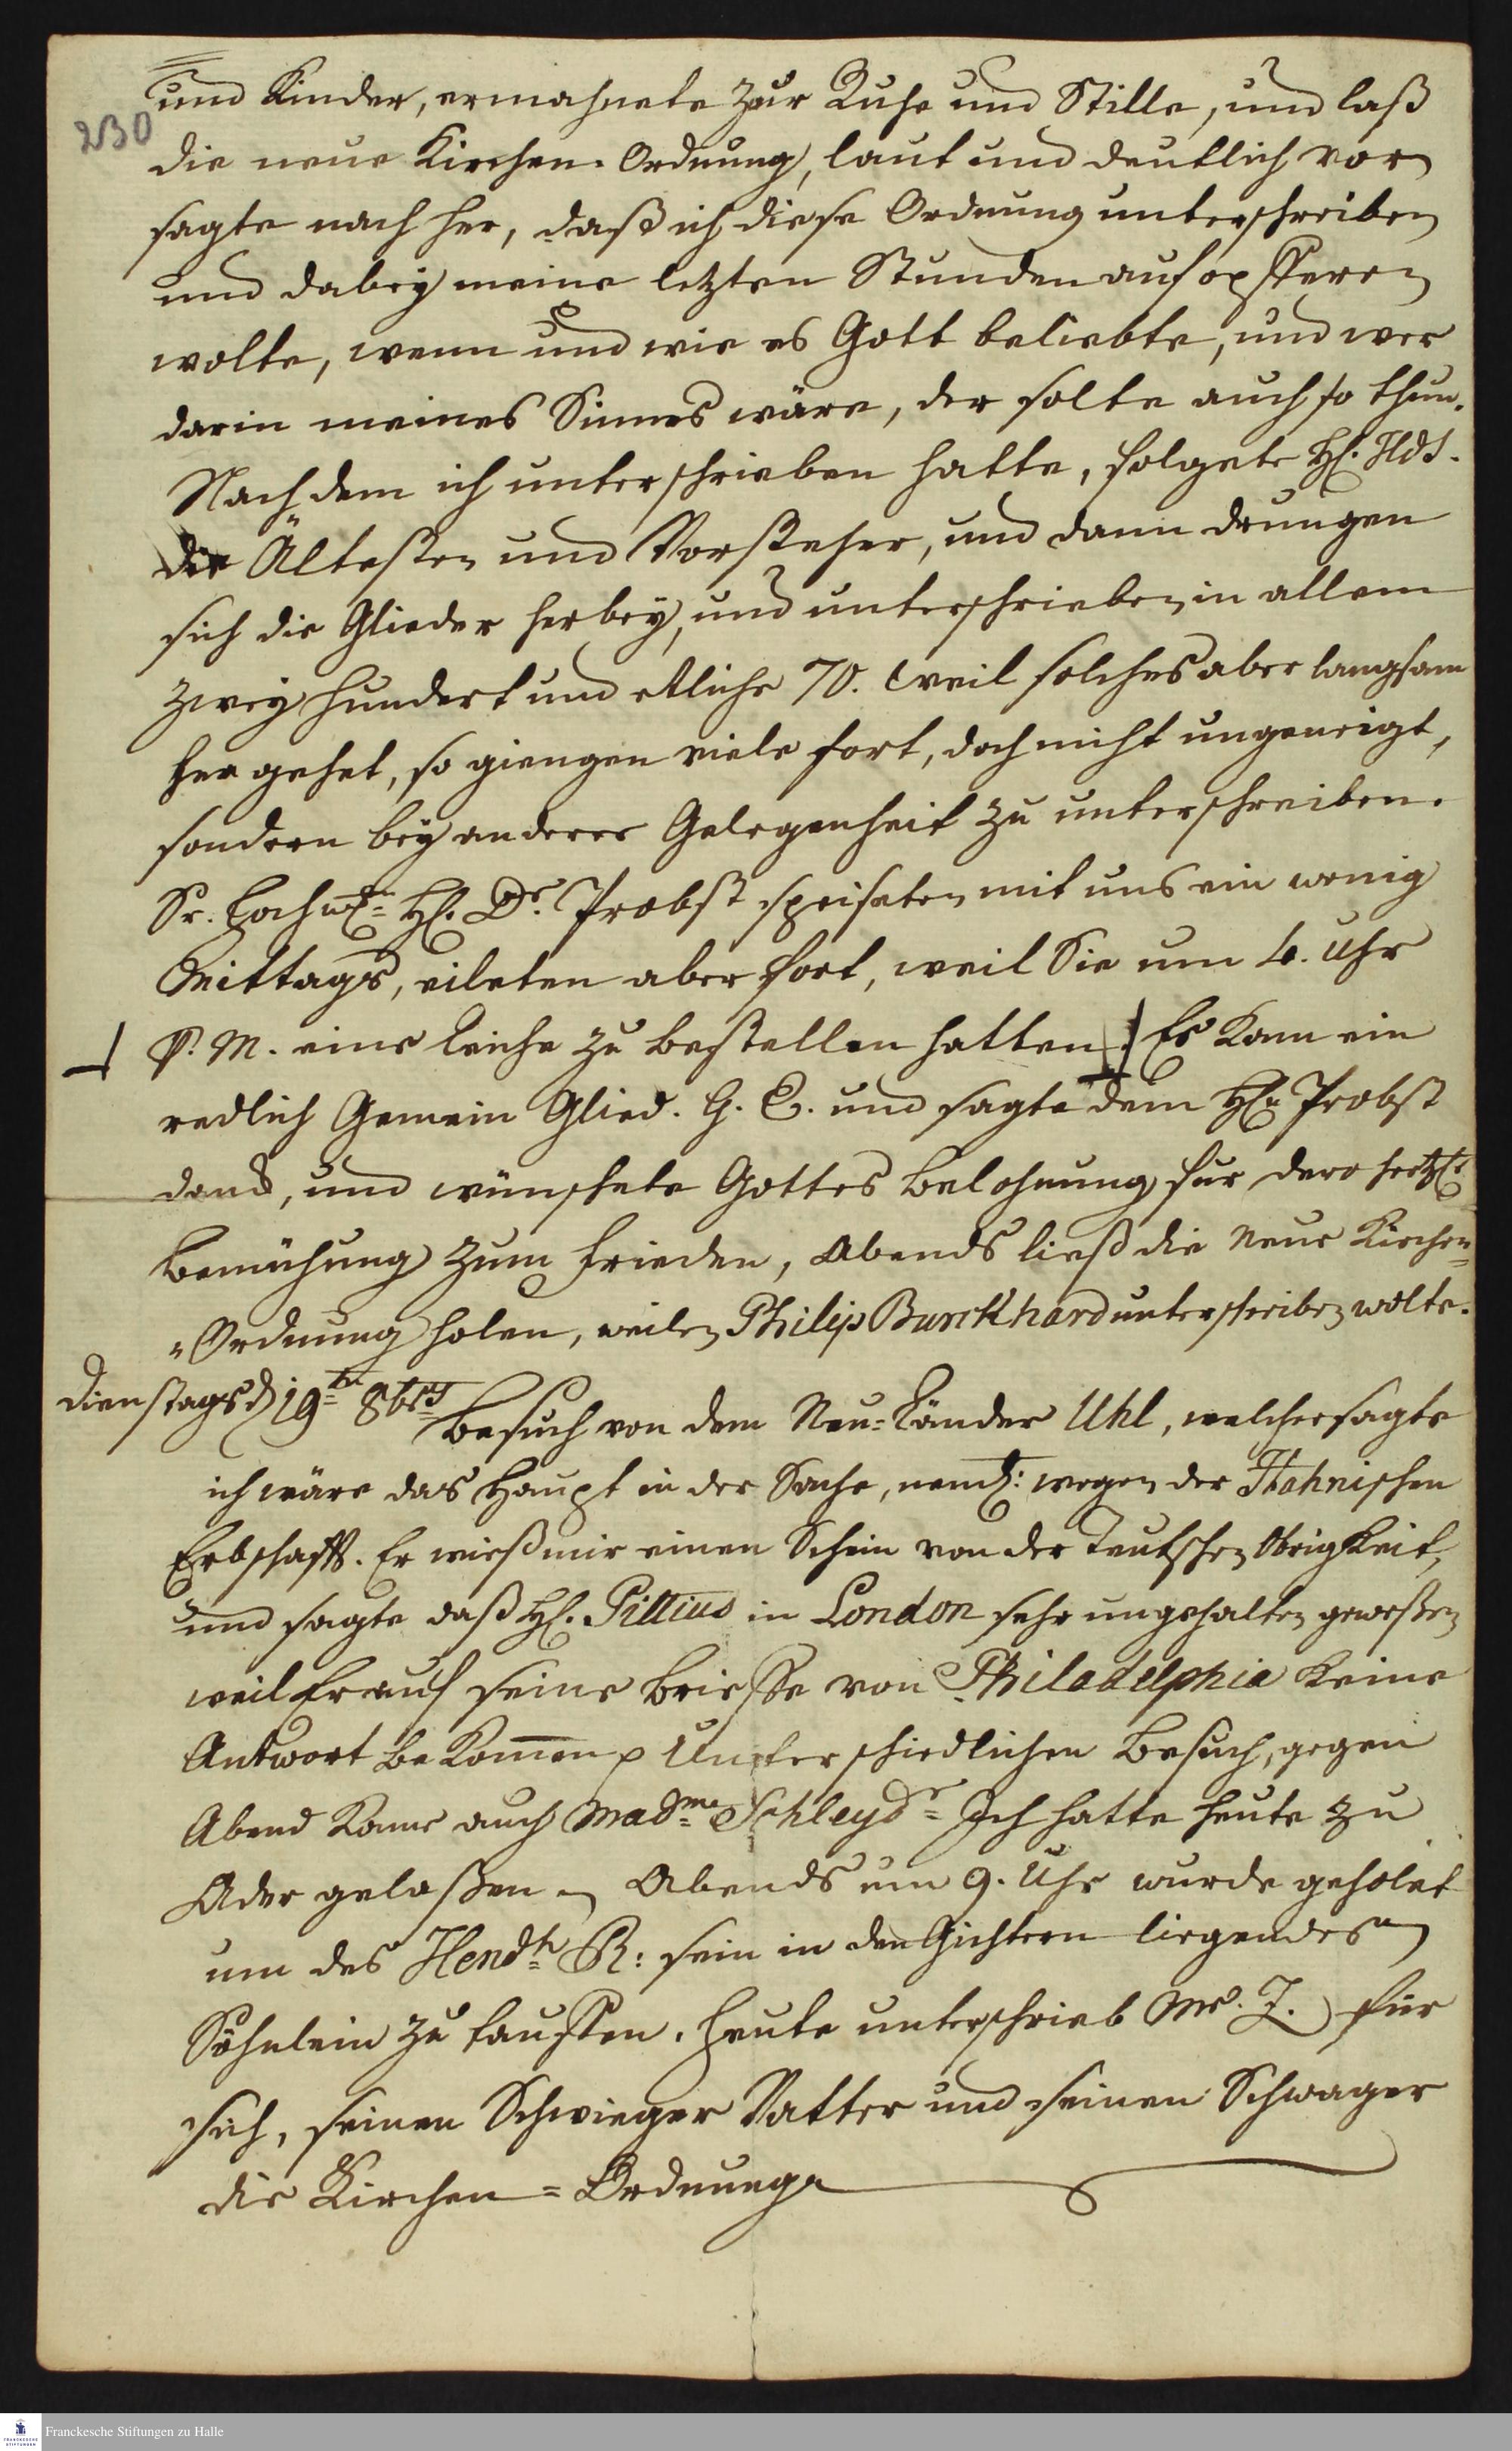 und Kinder, ermahnete zur Ruhe und Stille, und laß
230
die neue Kirchen-Ordnung, laut und deutlich vor,
sagte nach her, daß ich diese Ordnung unterschreiben,
und dabey meine letzten Stunden aufopfferen,
wolte, wenn und wie es Gott beliebte, und wer
darin meines Sinnes wäre, der solte auch so thun.
Nachdem ich unterschrieben hatte, folgete H. Hdt.
die Ältesten und Vorsteher, und dann drungen
sich die Glieder herbey, und unterschrieben in allem
zwey hundert und etliche 70. weil solches aber langsam
her gehet, so giengen viele fort, doch nicht ungeneigt,
sondern bey anderer Gelegenheit zu unterschreiben.
Sr. Hochw. H. Dr. Probst speiseten mit uns ein wenig
Mittags, eileten aber fort, weil Sie um 4. Uhr
P. M. eine Leiche zu bestellen hatten. Es kam ein
redlich Gemein Glied. G. E. und sagte dem H. Probst
danck, und wünschete Gottes Belohnung für dero hertzl.
Bemühung zum Frieden, Abends ließ die neue Kirchen=
"Ordnung holen, weilen Philip Burckhard unterschreiben wolte.
Dienstags d 19ten 8brs Besuch von dem Neu=Länder Uhl, welcher sagte
ich wäre das Haupt in der Sache, neml: wegen der Hahnischen
Erbschafft. Er wieß mir einen Schein von der Teutschen Obrigkeit,
und sagte daß H. Pittius in London sehr ungehalten geweßen,
weil Er auf seine Brieffe von Philadelphia keine
Antwort bekom̄en p Unterschiedlichen Besuch, gegen
Abend kame auch Madme Schleydr= Ich hatte heute zu
Ader gelaßen. Abends um 9. Uhr wurde geholet
um des Hendh R: sein in den Gichtern liegendes
Söhnlein zu tauffen. Heute unterschrieb Mr. Z. für
sich, seinen Schwieger Vatter und seinen Schwager
die Kirchen=Ordnung.
Franckesche Stiftungen zu Halle